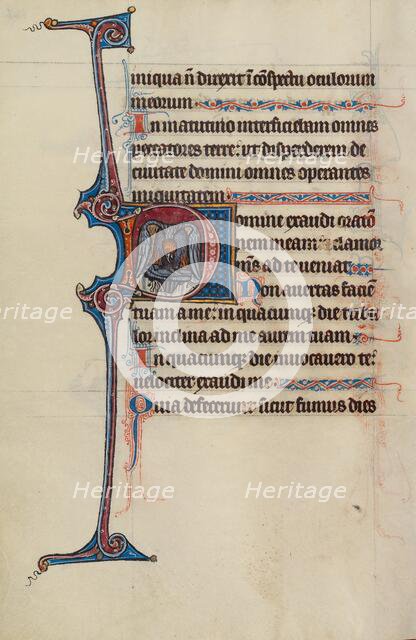 iniqua ñ direxit ĩ cõspectu oculorum
meorum
In matutino interficiebam omnes
peccatores terre: ut disperderem de
civitate domini omnes operantes
iniquitatem
Domine exaudi oratõ
nem meam: clamor
ms ad te veniat
Non avertas faciẽ
tuam a me: in quacunq; die tribu
lor inclina ad me aurem tuam
In quacunq; die invocavero te:
velociter exaudi me
Quia defecerunt sicut fumus dies
Heritage Heritage Heritage
Heritage Heritage Heritage
Heritage Heritage Heritage